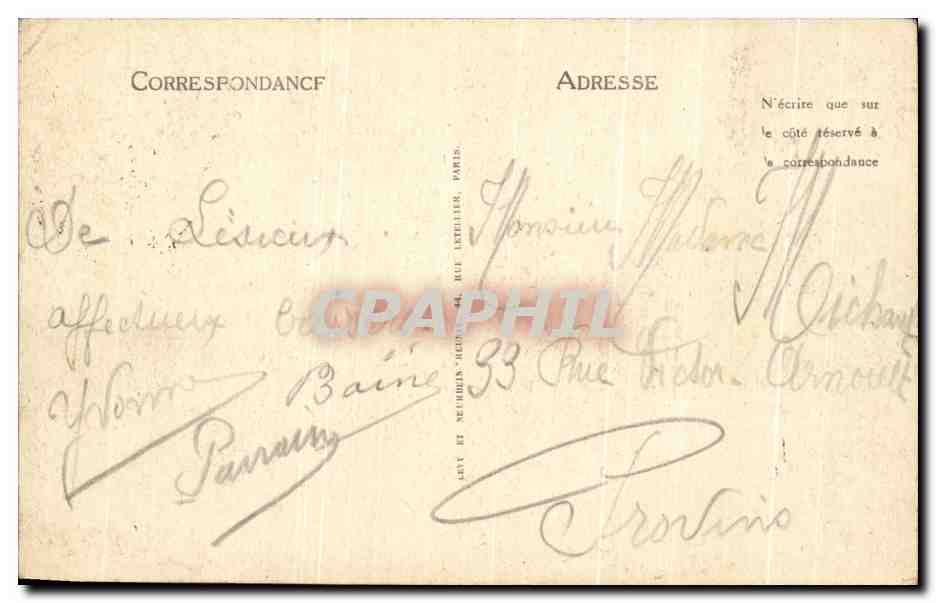 CORRESPONDANCE
ADRESSE
N'écrire que sur
le côté réservé à
la correspondance
De Lisieux
affectueux baisers
Yvonne
Parrain
LEVY ET NEURDEIN REUNIS 44, RUE LETELLIER, PARIS.
Monsieur Madame
Michaut
33 Rue Victor Arnoult
Provins
CPAPHIL